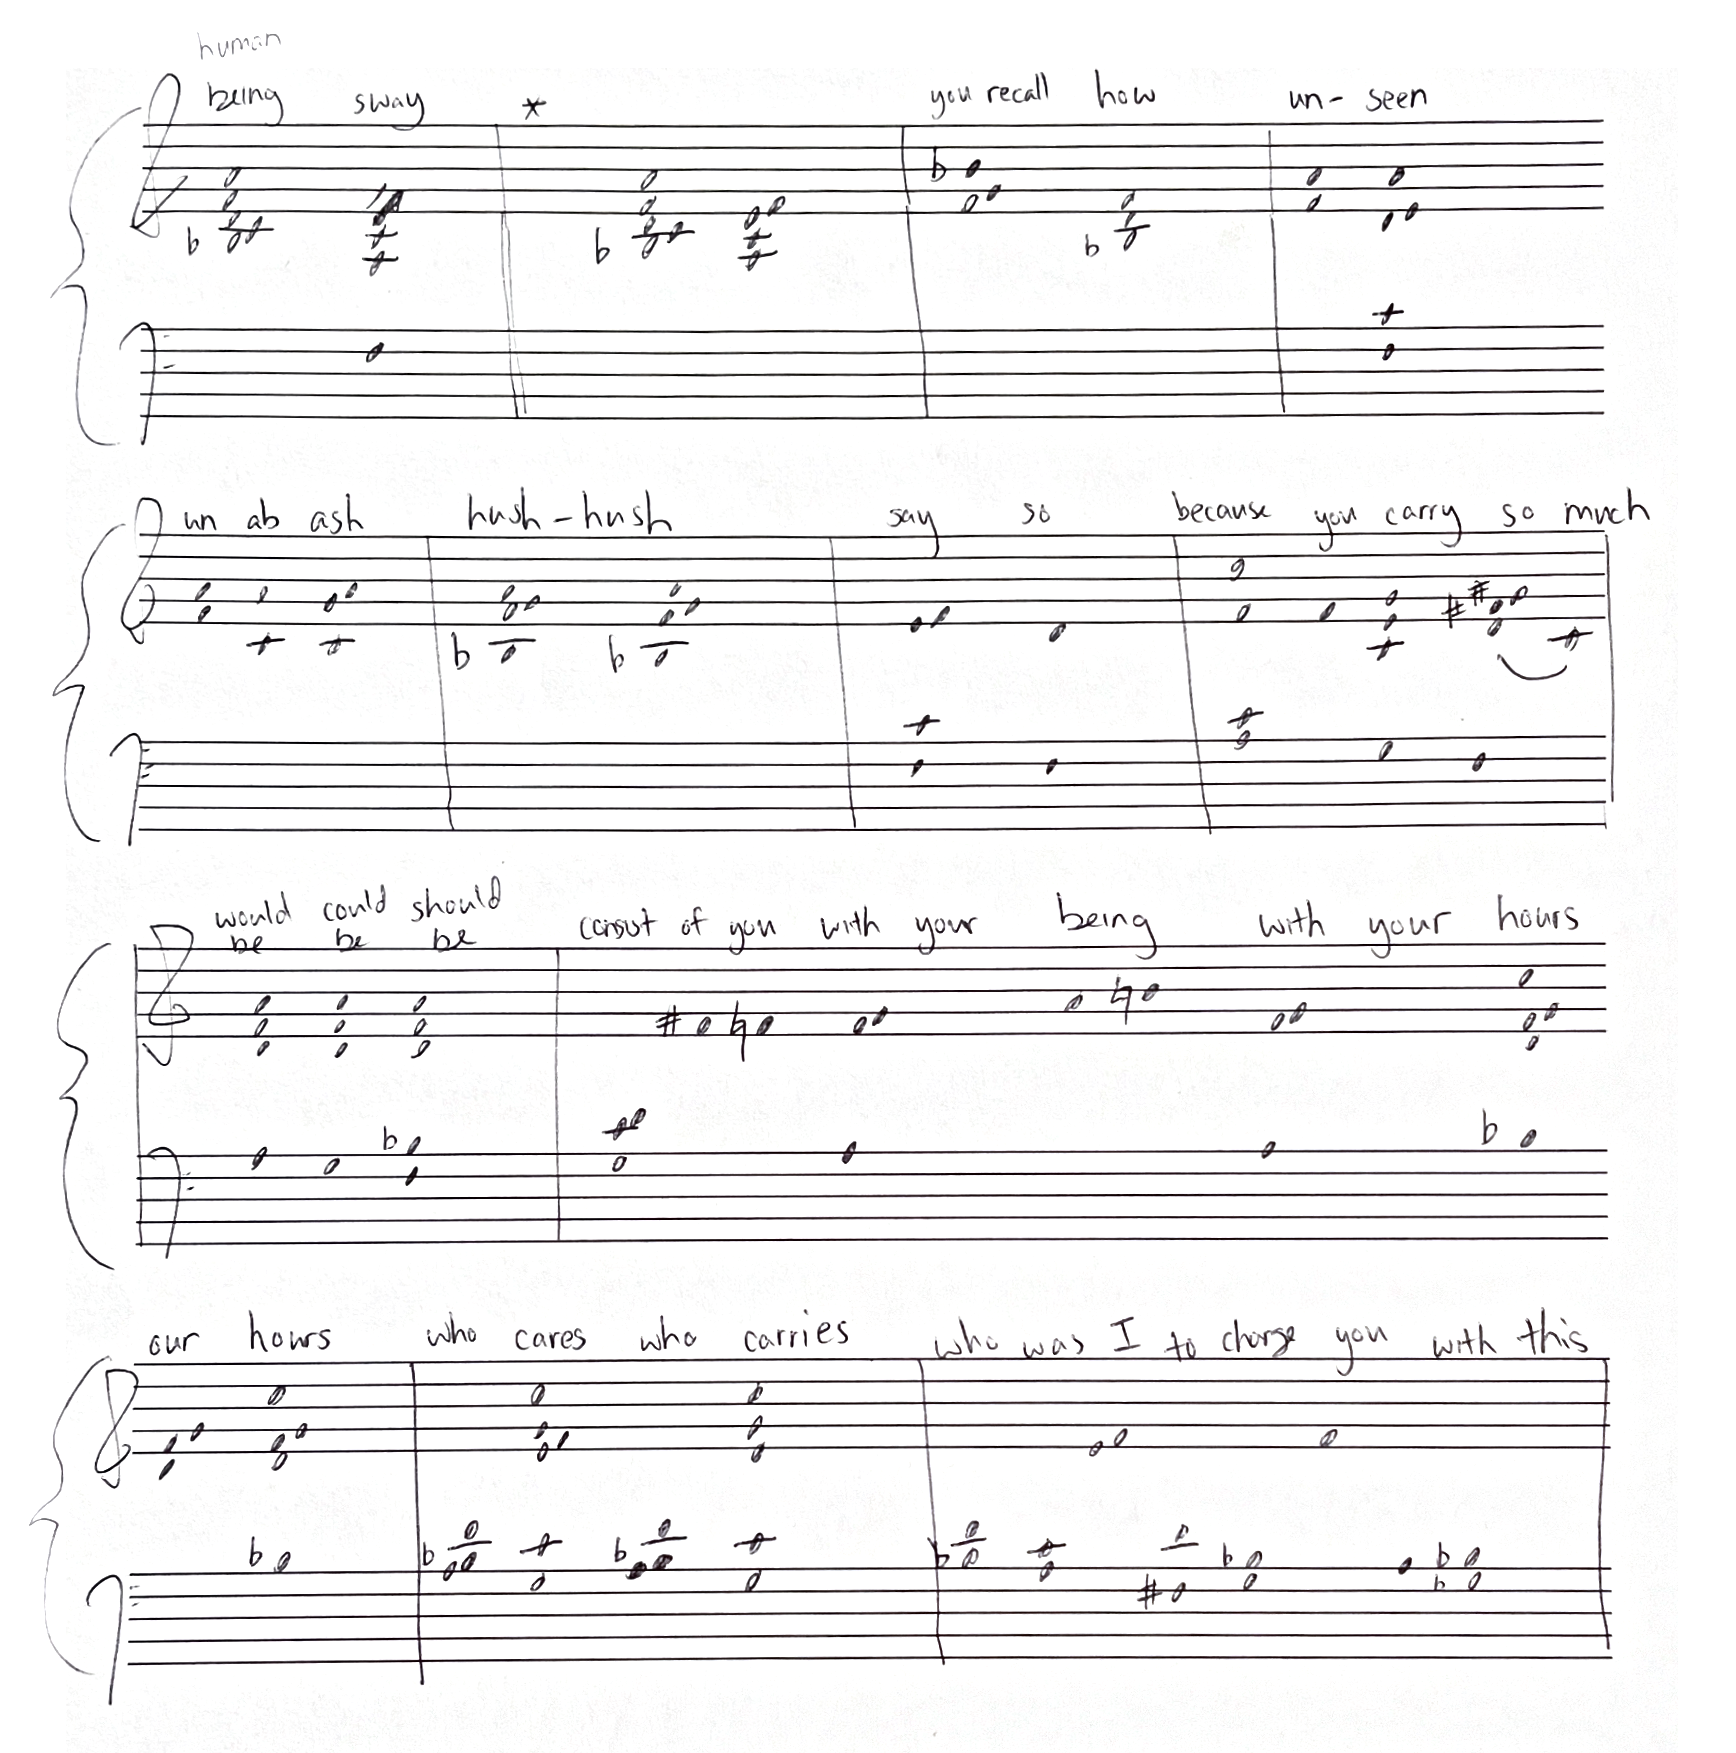 human
being sway * you recall how un- seen
un ab ash hush - hush say so because you carry so much
would could should
be be be consist of you with your being with your hours
our hours who cares who carries who was I to charge you with this